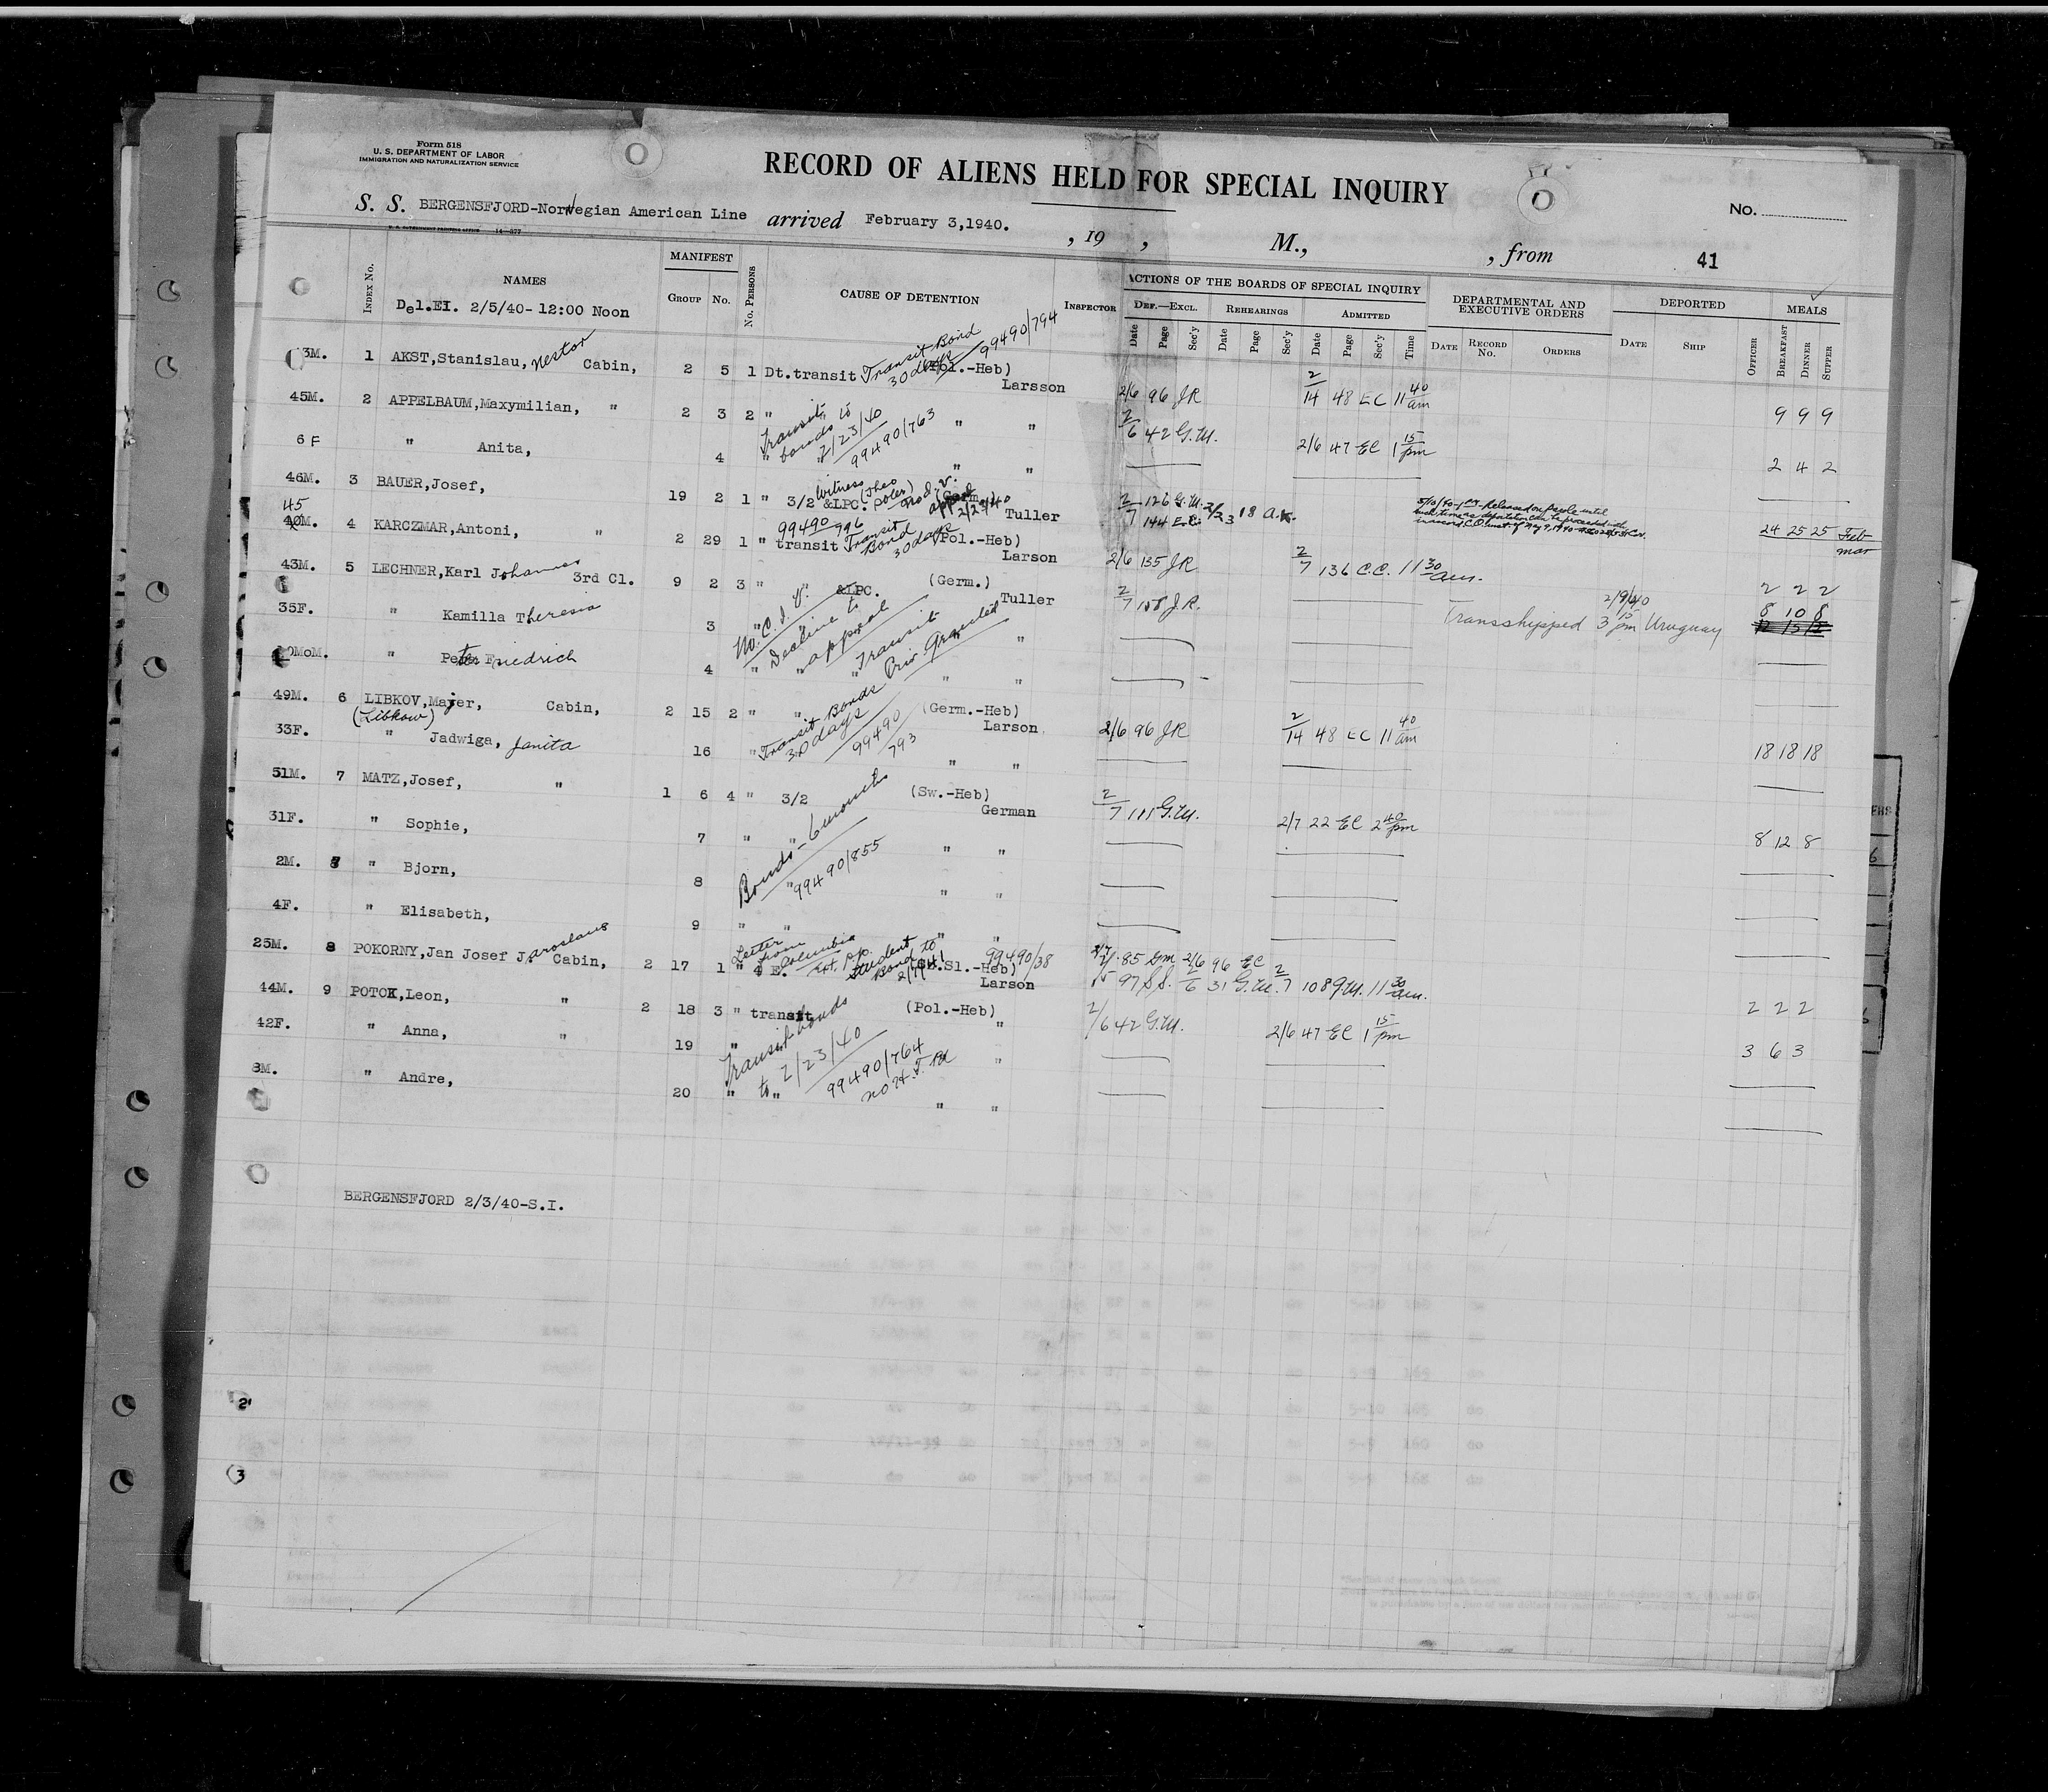 Form 518
U. S. DEPARTMENT OF LABOR
IMMIGRATION AND NATURALIZATION SERVICE
RECORD OF ALIENS HELD FOR SPECIAL INQUIRY
No.
S. S. BERGENSFJORD-Norwegian American Line arrived February 3,1940. , 19 , M., , from 41
U. S. GOVERNMENT PRINTING OFFICE 14-577
INDEX No. NAMES MANIFEST No. PERSONS CAUSE OF DETENTION INSPECTOR ACTIONS OF THE BOARDS OF SPECIAL INQUIRY DEPARTMENTAL AND EXECUTIVE ORDERS DEPORTED MEALS
GROUP No. DEF.—EXCL. REHEARINGS ADMITTED
Date Page Sec'y Date Page Sec'y Date Page Sec'y Time DATE RECORD No. ORDERS DATE SHIP OFFICER BREAKFAST DINNER SUPPER
Del.EI. 2/5/40-12:00 Noon
3M. 1 AKST,Stanislau, Nestor Cabin, 2 5 1 Dt.transit Transit Bond 30 days 99490/794 (Pol.-Heb) Larsson 2/6 96 JR 2/14 48 EC 11 40 am 9 9 9
45M. 2 APPELBAUM,Maxymilian, " 2 3 2 " " Transit bonds to 2/23/40 99490/763 " " 2/6 42 G.M. 2/6 47 EC 1 15 pm 2 4 2
6 F " Anita, 4 " " " "
46M. 3 BAUER,Josef, 19 2 1 " 3/2 &LPC. Witness (Theo Poler) (Germ.) Tuller 2/7 126 G.M. 144 E.C. 2/23 18 A.K. 24 25 25 Feb mar
45 40M. 4 KARCZMAR,Antoni, " 2 29 1 " transit 99490 796 Transit Bond 30 days (Pol.-Heb) Larson 2/6 135 JR 2/7 136 C.C. 11 30 am. 2 2 2
43M. 5 LECHNER,Karl Johannes 3rd Cl. 9 2 3 " " &LPC. (Germ.) Tuller 2/7 158 J.R. Transshipped 2/9/40 3 15 pm Uruguay 8 10 8
12 15 12
35F. " Kamilla Theresia 3 " " " No. C. I. V. Decline to appeal Transit Priv. Granted
MoM. " Peter Friedrich 4 " " " " "
49M. 6 LIBKOV,Mayer, Cabin, 2 15 2 " " (Germ.-Heb) Larson 2/6 96 JR 2/14 48 EC 11 40 am 18 18 18
(Libkow)
33F. " Jadwiga, Janita 16 " Transit Bonds 30 days 99490 793 " "
51M. 7 MATZ,Josef, " 1 6 4 " 3/2 (Sw.-Heb) German 2/7 111 G.M. 2/7 22 EC 2 40 pm 8 12 8
31F. " Sophie, 7 " " Bonds - 6 months 99490/855 " "
2M. 8 " Bjorn, 8 " " "
4F. " Elisabeth, 9 " " " "
25M. 8 POKORNY,Jan Josef Jaroslaus Cabin, 2 17 1 " 4 E. Letter from Columbia Student Bond to 2/7/41 99490/38 Larson 85 GM 2/6 96 EC 97 S.S. 2/6 31 G.M. 2/7 108 G.M. 11 30 am. 2 2 2
44M. 9 POTOK,Leon, " 2 18 3 " transit (Pol.-Heb) " 2/6 42 G.M. 2/6 47 EC 1 15 pm 3 6 3
42F. " Anna, " 19 " " Transit bonds to 2/23/40 99490/764 "
8M. " Andre, 20 " " " "
BERGENSFJORD 2/3/40-S.I.
2
3